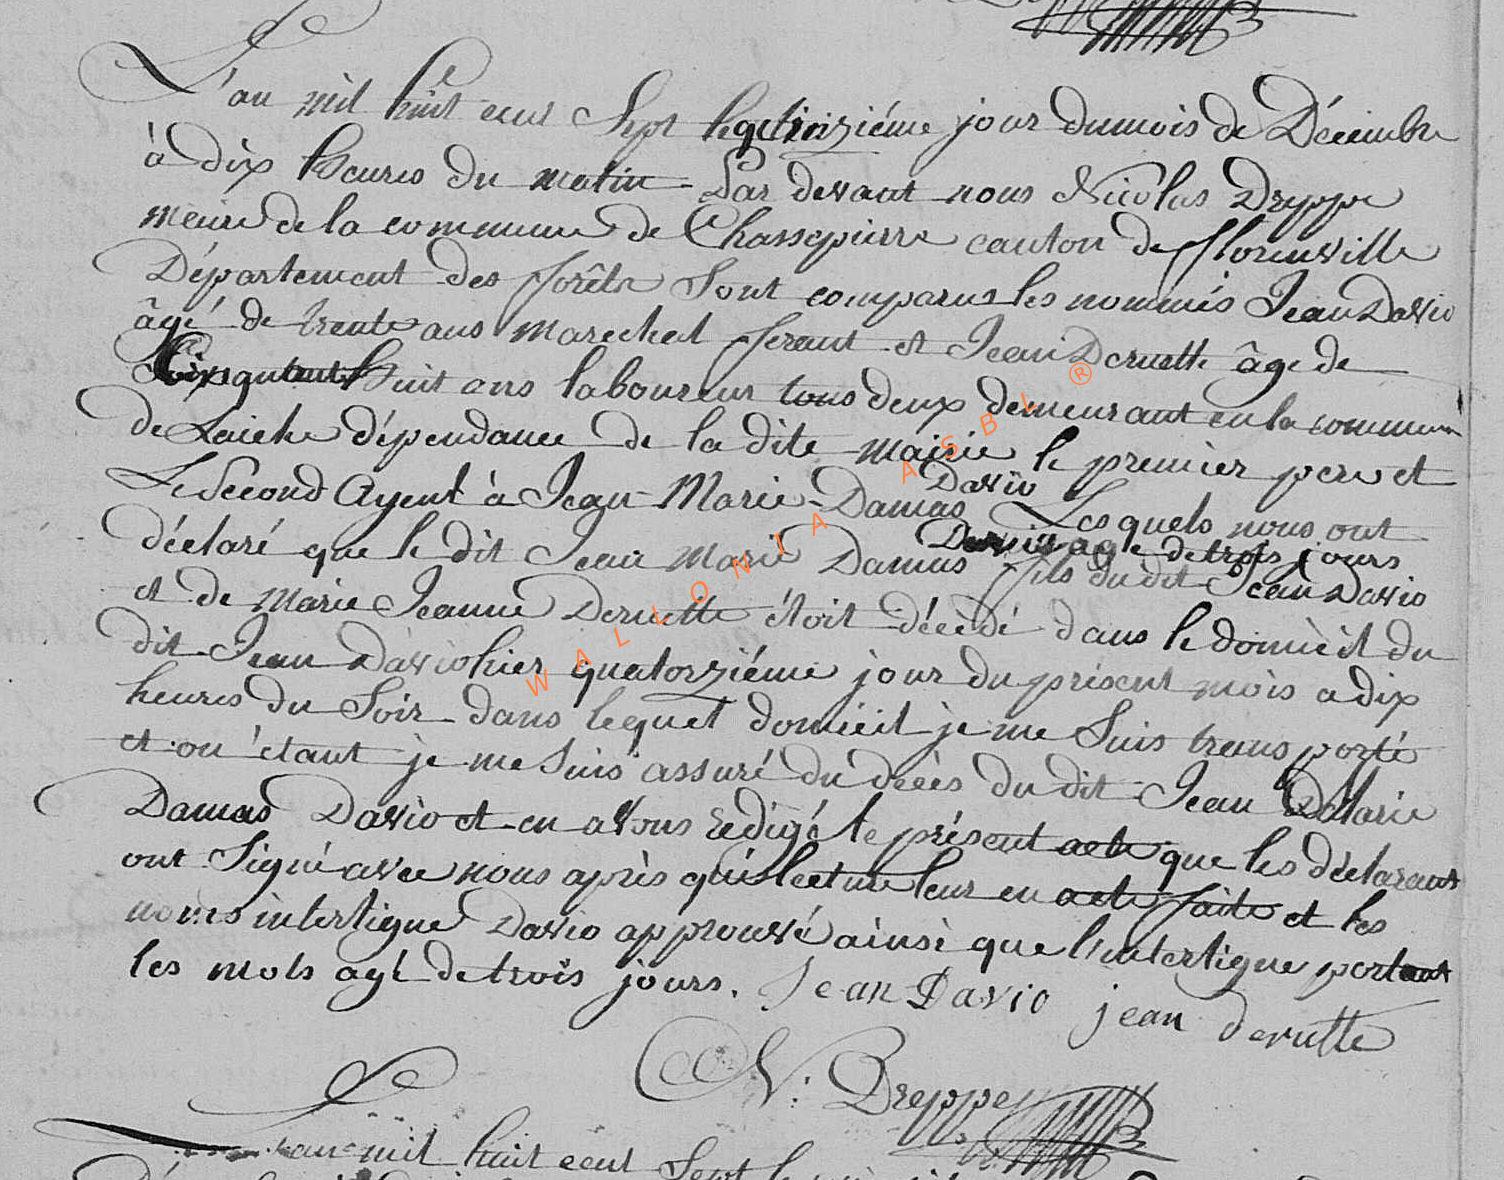 L'an mil huit cent Sept le quinziéme jour du mois de Décembre
à dix heures du matin Par devant nous Nicolas Dreppe
maire de la commune de Chassepierre canton de florenville
Département des forêts Sont comparus les nommés Jean Davio
âgé de trente ans marechal ferant et Jean Deruette âge de
Cinquante huit ans laboureur tous deux demeurant en la commune
de Laiche dépendance de la dite mairie le premier pere et
Le Second Ayeul à Jean Marie Damas Davio Lesquels nous ont
déclaré que le dit Jean Marie Damas Davio agé de trois jours fils du dit Jean Davio
et de Marie Jeanne Deruette étoit décèdé dans le domicil du
dit Jean Davio hier quatorziéme jour du présent mois a dix
heures du Soir dans lequel domicil je me Suis transporté
et ou étant je me Suis assuré du décès du dit Jean Marie
Damas Davio et en avons redigé le présent acte que les déclarans
ont Signé avec nous après que lecture leur en acté faite et les
noms interligne Davio approuvé ainsi que l'interligne portant
les mots agé de trois jours. Jean Davio jean deruette
N: Dreppe
L'an mil huit cent Sept
WALLONIA ASBL ®